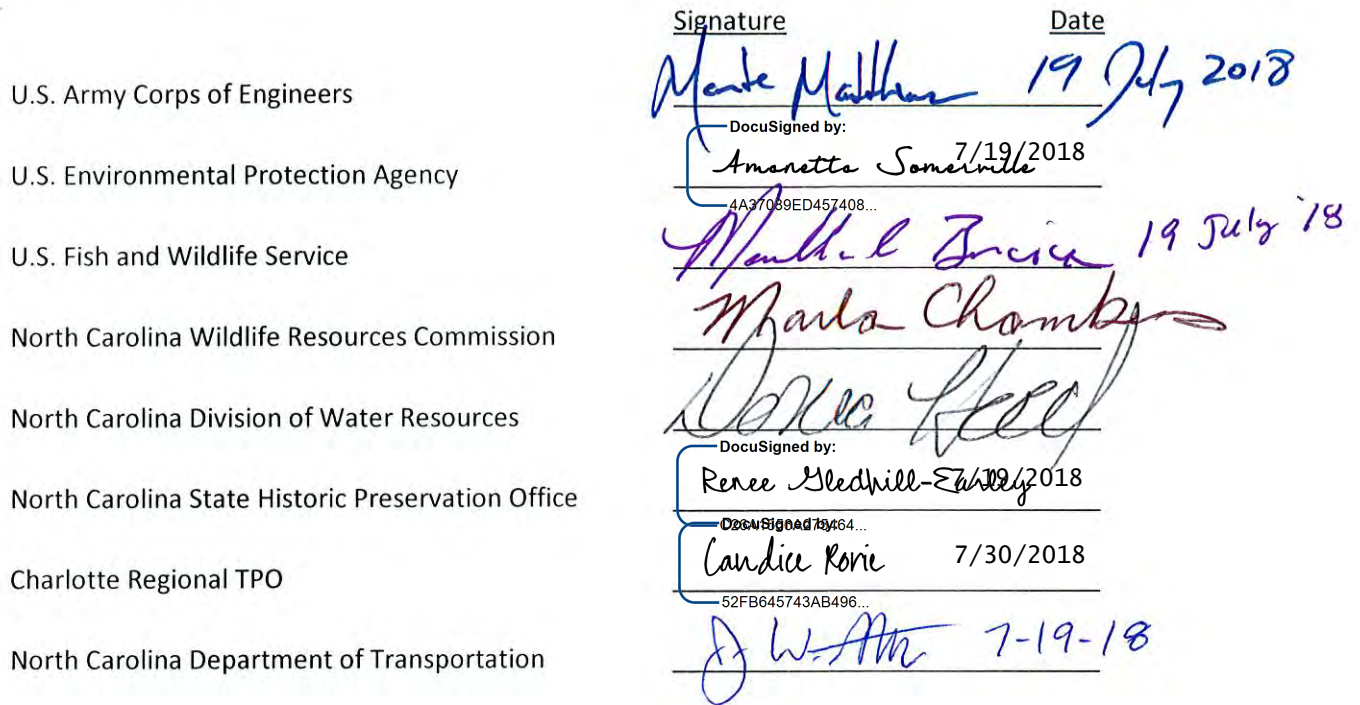 Signature Date
U.S. Army Corps of Engineers Monte Matthews 19 July 2018
DocuSigned by:
U.S. Environmental Protection Agency Amanetta Somerville 7/19/2018
4A37089ED457408...
U.S. Fish and Wildlife Service 19 July '18
North Carolina Wildlife Resources Commission Marla Chambers
North Carolina Division of Water Resources Donna Hood
DocuSigned by:
North Carolina State Historic Preservation Office Renee Gledhill-Earley 7/19/2018
DocuSigned by:
Charlotte Regional TPO Candice Rorie 7/30/2018
52FB645743AB496...
North Carolina Department of Transportation 7-19-18